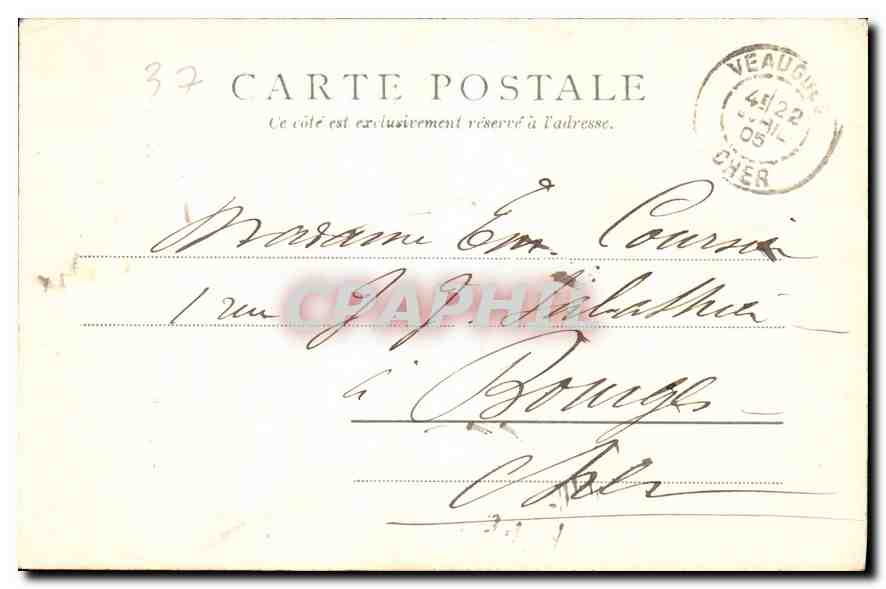 37
CARTE POSTALE
Ce côté est exclusivement réservé à l'adresse.
VEAUGUES
4E 22
AVRIL
05
CHER
Madame Em. Coursin
1 rue J. J.
à Bourges
Cher
CPAPHIL